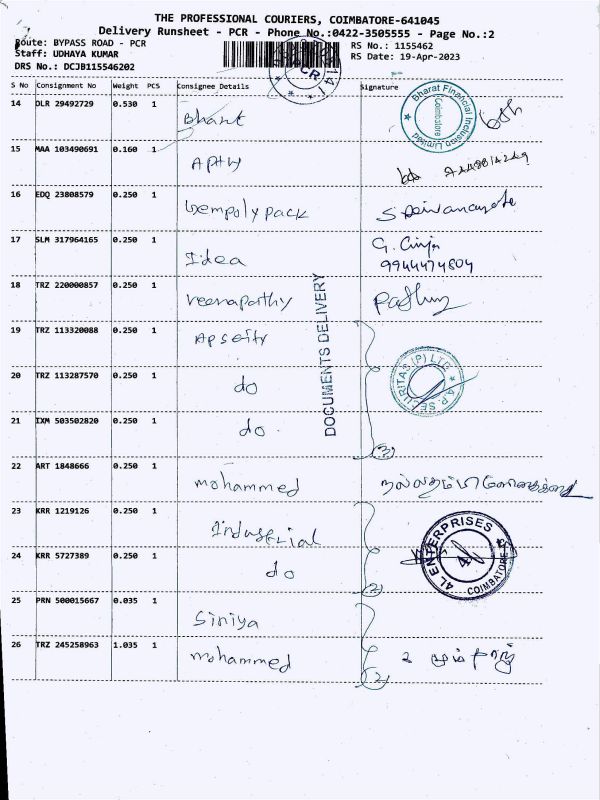 THE PROFESSIONAL COURIERS, COIMBATORE-641045
Delivery Runsheet - PCR - Phone No.:0422-3505555 - Page No.:2
Route: BYPASS ROAD - PCR
Staff: UDHAYA KUMAR
DRS No.: DCJB115546202
RS No.: 1155462
RS Date: 19-Apr-2023
PCR
S No Consignment No Weight PCS Consignee Details Signature
14 DLR 29492729 0.530 1 Bharat
Bharat Financial Inclusion Limited
Coimbatore
15 MAA 103490691 0.160 1
16 EDQ 23808579 0.250 1 pack
17 SLM 317964165 0.250 1 Idea G.
9944474804
18 TRZ 220000857 0.250 1
DOCUMENTS DELIVERY
19 TRZ 113320088 0.250 1
20 TRZ 113287570 0.250 1 do
21 IXM 503502820 0.250 1 do
22 ART 1848666 0.250 1 mohammed
23 KRR 1219126 0.250 1 Industrial
4L ENTERPRISES
COIMBATORE
24 KRR 5727389 0.250 1 do
25 PRN 500015667 0.035 1 Siniya
26 TRZ 245258963 1.035 1 mohammed 2